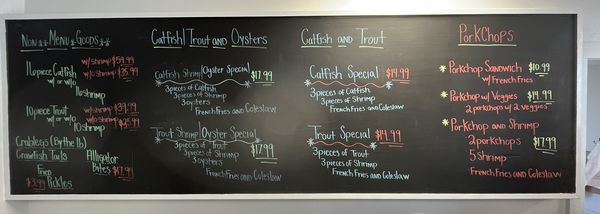 Now Menu Goods
11 piece Catfish
w/ or w/o
10 shrimp
w/shrimp $59.99
w/o shrimp $35.99
10 piece Trout
w/ or w/o
10 shrimp
w/shrimp $39.99
w/o shrimp
Crablegs (By the lb)
Crawfish Tails
Alligator
Bites $17.99
Fried
$3.99 Pickles
Catfish/Trout and Oysters
Catfish Shrimp/Oyster Special $17.99
3 pieces of Catfish
3 pieces of Shrimp
3 oysters
French Fries and Coleslaw
Trout Shrimp/Oyster Special
$17.99
3 pieces of Trout
3 pieces of Shrimp
3 oysters
French Fries and Coleslaw
Catfish and Trout
Catfish Special $14.99
3 pieces of Catfish
3 pieces of Shrimp
French Fries and Coleslaw
Trout Special $14.99
3 pieces of Trout
3 pieces of Shrimp
French Fries and Coleslaw
PorkChops
* Porkchop Sandwich $10.99
w/ French Fries
* Porkchop w/ Veggies $14.99
2 porkchops w/ 2 veggies
* Porkchop and Shrimp
2 porkchops $17.99
5 Shrimp
French Fries and Coleslaw